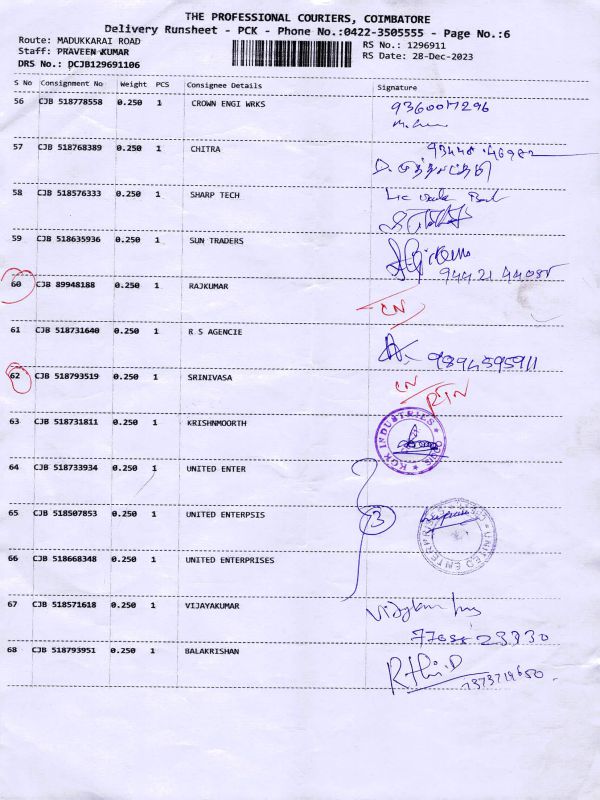 THE PROFESSIONAL COURIERS, COIMBATORE
Delivery Runsheet - PCK - Phone No.:0422-3505555 - Page No.:6
Route: MADUKKARAI ROAD
RS No.: 1296911
Staff: PRAVEEN KUMAR
RS Date: 28-Dec-2023
DRS No.: DCJB129691106
S No Consignment No Weight PCS Consignee Details Signature
56 CJB 518778558 0.250 1 CROWN ENGI WRKS
57 CJB 518768389 0.250 1 CHITRA
58 CJB 518576333 0.250 1 SHARP TECH
59 CJB 518635936 0.250 1 SUN TRADERS
60 CJB 89948188 0.250 1 RAJKUMAR
CN
61 CJB 518731640 0.250 1 R S AGENCIE
9894595911
62 CJB 518793519 0.250 1 SRINIVASA
CN
RTN
63 CJB 518731811 0.250 1 KRISHNMOORTH
KGK INDUSTRIES
64 CJB 518733934 0.250 1 UNITED ENTER
65 CJB 518507853 0.250 1 UNITED ENTERPSIS
3
UNITED ENTERPRISES
66 CJB 518668348 0.250 1 UNITED ENTERPRISES
67 CJB 518571618 0.250 1 VIJAYAKUMAR
68 CJB 518793951 0.250 1 BALAKRISHAN